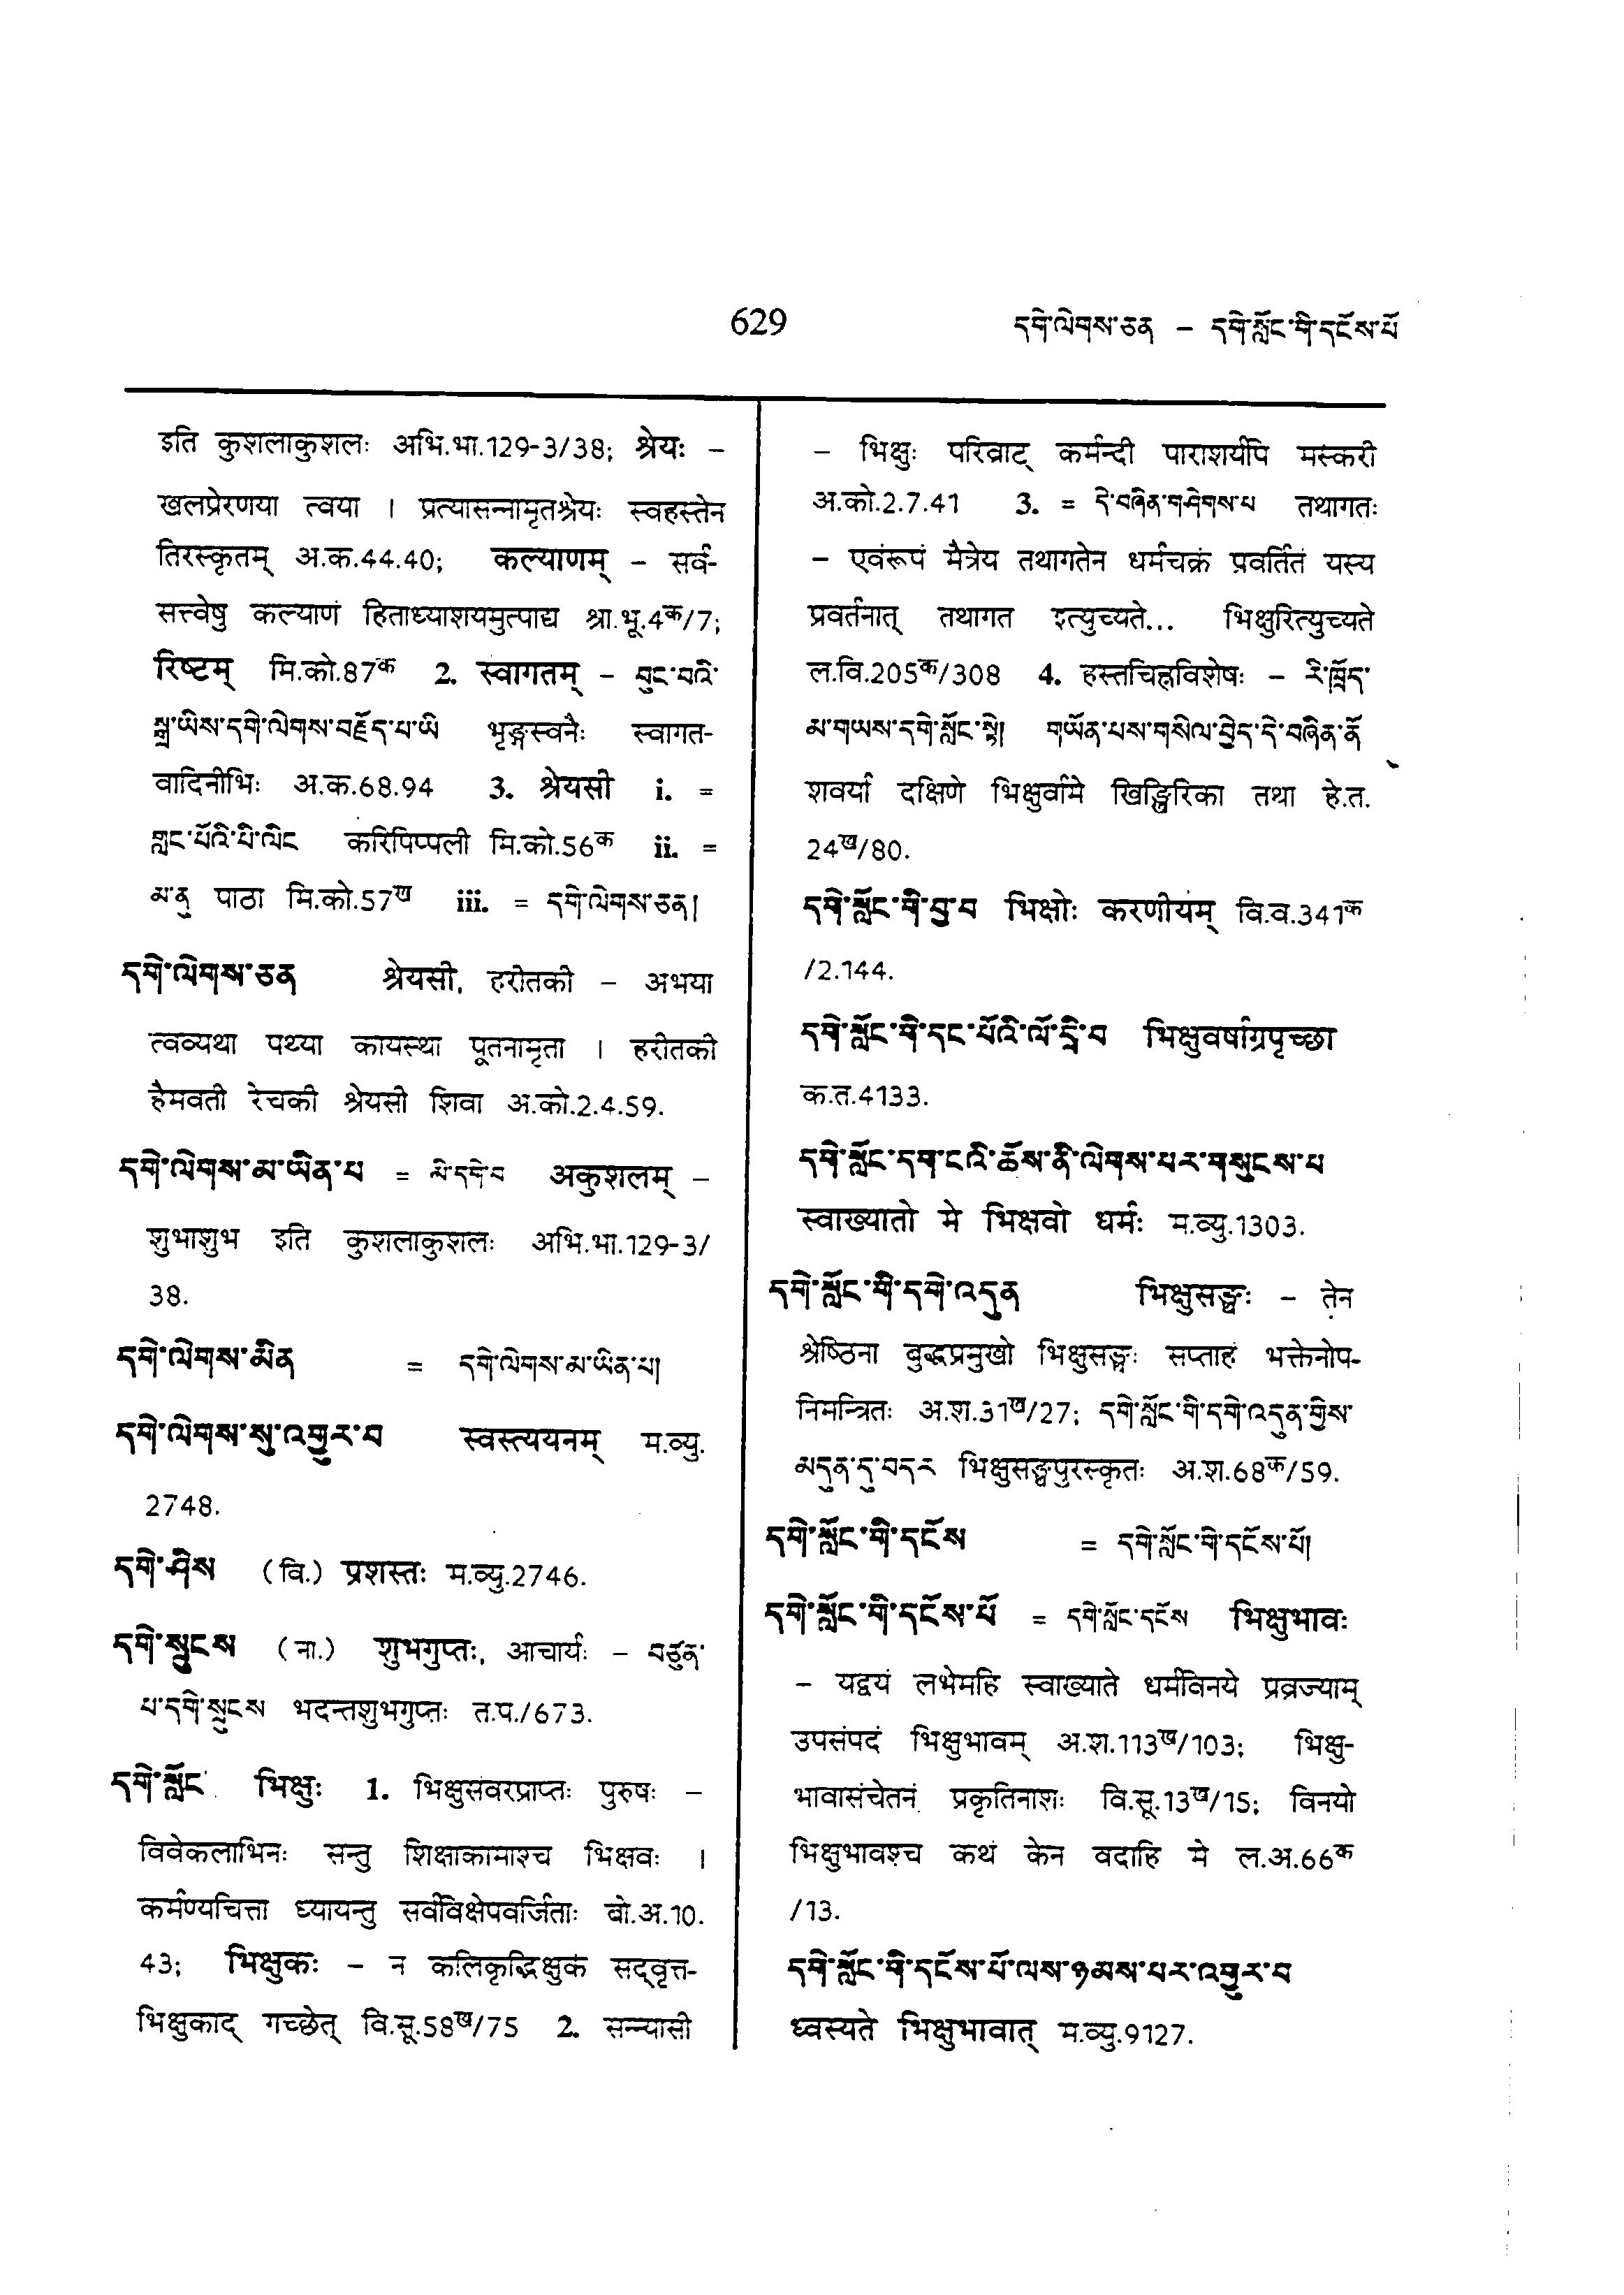 629
དགེ་ལེགས་ཅན – དགེ་སློང་གི་དངོས་པོ
इति कुशलाकुशलः अभि.भा.129-3/38; श्रेयः –
खलप्रेरणया त्वया । प्रत्यासन्नामृतश्रेयः स्वहस्तेन
तिरस्कृतम् अ.क.44.40; कल्याणम् – सर्व-
सत्त्वेषु कल्याणं हिताध्याशयमुत्पाद्य श्रा.भू.4क/7;
रिष्टम् मि.को.87क 2. स्वागतम् – བུང་བའི་
སྒྲ་ཡིས་དགེ་ལེགས་བརྗོད་པ་ཡི भृङ्गस्वनैः स्वागत-
वादिनीभिः अ.क.68.94 3. श्रेयसी i. =
གླང་པོའི་པི་ལིང करिपिप्पली मि.को.56क ii. =
མ་ནུ पाठा मि.को.57ख iii. = དགེ་ལེགས་ཅན།
དགེ་ལེགས་ཅན श्रेयसी, हरीतकी – अभया
त्वव्यथा पथ्या कायस्था पूतनामृता । हरीतकी
हैमवती रेचकी श्रेयसी शिवा अ.को.2.4.59.
དགེ་ལེགས་མ་ཡིན་པ = མི་དགེ་བ अकुशलम् –
शुभाशुभ इति कुशलाकुशलः अभि.भा.129-3/
38.
དགེ་ལེགས་མིན = དགེ་ལེགས་མ་ཡིན་པ།
དགེ་ལེགས་སུ་འགྱུར་བ स्वस्त्ययनम् म.व्यु.
2748.
དགེ་ཤིས (वि.) प्रशस्तः म.व्यु.2746.
དགེ་སྲུངས (ना.) शुभगुप्तः, आचार्यः – བཙུན་
པ་དགེ་སྲུངས भदन्तशुभगुप्तः त.प./673.
དགེ་སློང भिक्षुः 1. भिक्षुसंवरप्राप्तः पुरुषः –
विवेकलाभिनः सन्तु शिक्षाकामाश्च भिक्षवः ।
कर्मण्यचित्ता ध्यायन्तु सर्वविक्षेपवर्जिताः बो.अ.10.
43; भिक्षुकः – न कलिकृद्भिक्षुकं सद्वृत्त-
भिक्षुकाद् गच्छेत् वि.सू.58ख/75 2. सन्न्यासी
– भिक्षुः परिव्राट् कर्मन्दी पाराशर्यपि मस्करी
अ.को.2.7.41 3. = དེ་བཞིན་གཤེགས་པ तथागतः
– एवंरूपं मैत्रेय तथागतेन धर्मचक्रं प्रवर्तितं यस्य
प्रवर्तनात् तथागत इत्युच्यते... भिक्षुरित्युच्यते
ल.वि.205क/308 4. हस्तचिह्नविशेषः – རི་ཁྲོད་
མ་གཡས་དགེ་སློང་སྟེ། གཡོན་པས་གསིལ་བྱེད་དེ་བཞིན་ནོ
शवर्या दक्षिणे भिक्षुर्वामे खिङ्खिरिका तथा हे.त.
24ख/80.
དགེ་སློང་གི་བྱ་བ भिक्षोः करणीयम् वि.व.341क
/2.144.
དགེ་སློང་གི་དང་པོའི་ལོ་དྲི་བ भिक्षुवर्षाग्रपृच्छा
क.त.4133.
དགེ་སློང་དག་ངའི་ཆོས་ནི་ལེགས་པར་གསུངས་པ
स्वाख्यातो मे भिक्षवो धर्मः म.व्यु.1303.
དགེ་སློང་གི་དགེ་འདུན भिक्षुसङ्घः – तेन
श्रेष्ठिना बुद्धप्रमुखो भिक्षुसङ्घः सप्ताहं भक्तेनोप-
निमन्त्रितः अ.श.31ख/27; དགེ་སློང་གི་དགེ་འདུན་གྱིས་
མདུན་དུ་བདར भिक्षुसङ्घपुरस्कृतः अ.श.68क/59.
དགེ་སློང་གི་དངོས = དགེ་སློང་གི་དངོས་པོ།
དགེ་སློང་གི་དངོས་པོ = དགེ་སློང་དངོས भिक्षुभावः
– यद्वयं लभेमहि स्वाख्याते धर्मविनये प्रव्रज्याम्
उपसंपदं भिक्षुभावम् अ.श.113ख/103; भिक्षु-
भावासंचेतनं प्रकृतिनाशः वि.सू.13ख/15; विनयो
भिक्षुभावश्च कथं केन वदाहि मे ल.अ.66क
/13.
དགེ་སློང་གི་དངོས་པོ་ལས་ཉམས་པར་འགྱུར་བ
ध्वस्यते भिक्षुभावात् म.व्यु.9127.